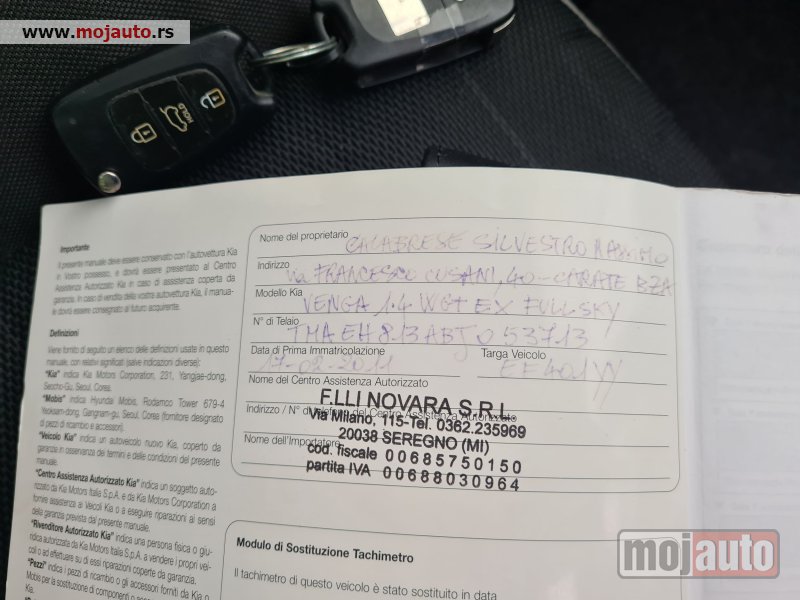 www.mojauto.rs
Importante
Il presente manuale deve essere conservato con l'autovettura Kia
in Vostro possesso, e dovrà essere presentato al Centro
Assistenza Autorizzato Kia in caso di assistenza coperta da
garanzia. In caso di vendita della vostra autovettura Kia, il manua-
le dovrà essere consegnato al futuro acquirente.
Definizioni
Viene fornito di seguito un elenco delle definizioni usate in questo
manuale, con relativi significati (salve indicazioni diverse):
"Kia" indica Kia Motors Corporation, 231, Yangjae-dong,
Seocho-Gu, Seoul, Corea.
"Mobis" indica Hyundai Mobis, Rodamco Tower 679-4
Yeoksam-dong, Gangnam-gu, Seoul, Corea (fornitore designato
di pezzi di ricambio e accessori).
"Veicolo Kia" indica un autoveicolo nuovo Kia, coperto da
garanzie in ossequio dei termini e delle condizioni del presente
manuale.
"Centro Assistenza Autorizzato Kia" indica un soggetto auto-
rizzato da Kia Motors Italia S.p.A. e da Kia Motors Corporation a
fornire assistenza ai Veicoli Kia o a eseguire riparazioni ai sensi
della garanzia prevista dal presente manuale.
"Rivenditore Autorizzato Kia" indica una persona fisica o giu-
ridica autorizzata da Kia Motors Italia S.p.A. a vendere i propri vei-
coli o ad effettuare su di essi riparazioni coperte da garanzia.
"Pezzi" indica i pezzi di ricambio o gli accessori forniti da Kia o
Mobis per la sostituzione di componenti o
Kia.
Nome del proprietario SILVESTRO MASSIMO
Indirizzo Via FRANCESCO CUSANI, 40 - CARATE BZA
Modello Kia VENGA 1.4 WGT EX FULLSKY
N° di Telaio TMAEH813ABJ053713
Data di Prima Immatricolazione Targa Veicolo
17-02-2011 EE401YY
Nome del Centro Assistenza Autorizzato
F.LLI NOVARA S.R.L.
Indirizzo / N° di telefono del Centro Assistenza Autorizzato
Via Milano, 115-Tel. 0362.235969
20038 SEREGNO (MI)
Nome dell'Importatore
cod. fiscale 00685750150
partita IVA 00688030964
Modulo di Sostituzione Tachimetro
Il tachimetro di questo veicolo è stato sostituito in data
mojauto